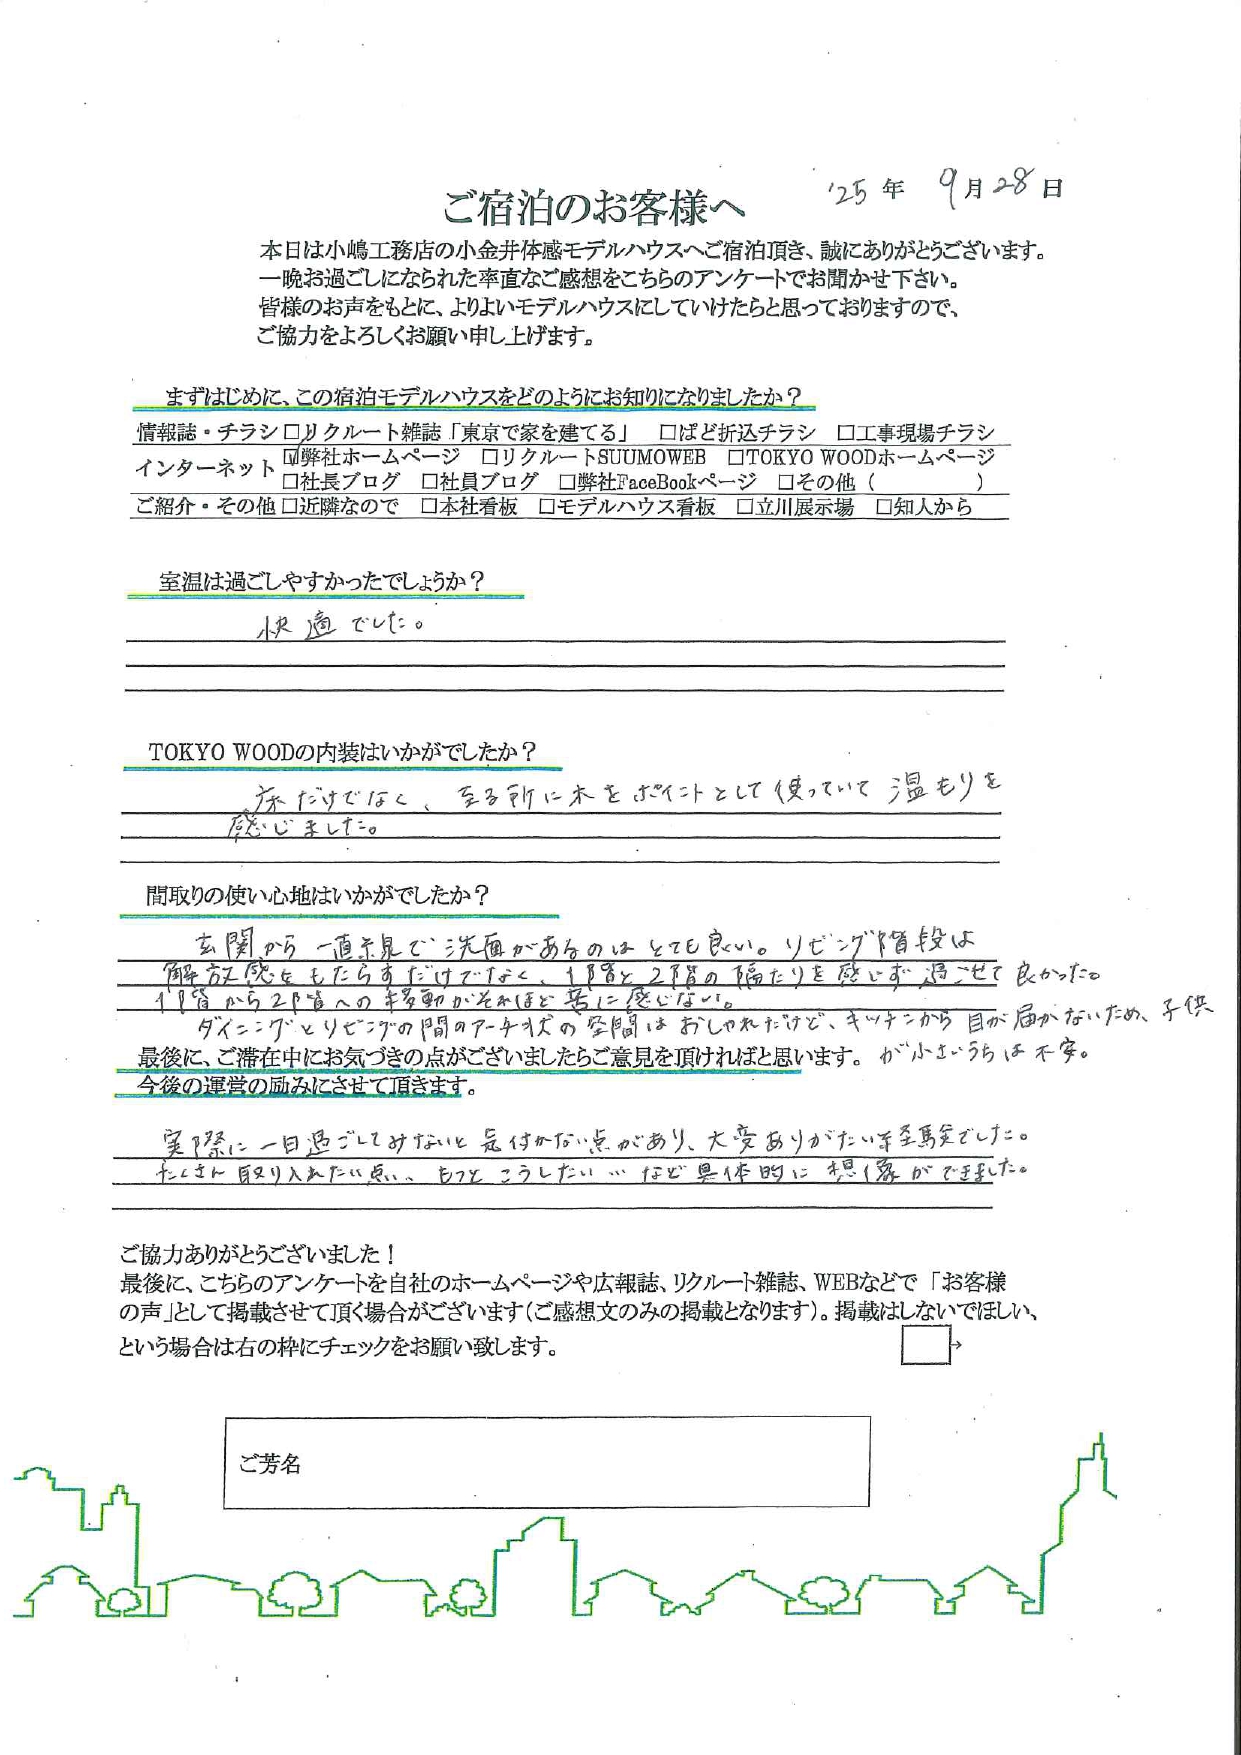 '25 年 9月28日
ご宿泊のお客様へ
本日は小嶋工務店の小金井体感モデルハウスへご宿泊頂き、誠にありがとうございます。
一晩お過ごしになられた率直なご感想をこちらのアンケートでお聞かせ下さい。
皆様のお声をもとに、よりよいモデルハウスにしていけたらと思っておりますので、
ご協力をよろしくお願い申し上げます。
まずはじめに、この宿泊モデルハウスをどのようにお知りになりましたか？
情報誌・チラシ □リクルート雑誌「東京で家を建てる」 □ぱど折込チラシ □工事現場チラシ
インターネット ☑弊社ホームページ □リクルートSUUMOWEB □TOKYO WOODホームページ
□社長ブログ □社員ブログ □弊社FaceBookページ □その他（　　　　）
ご紹介・その他 □近隣なので □本社看板 □モデルハウス看板 □立川展示場 □知人から
室温は過ごしやすかったでしょうか？
快適でした。
TOKYO WOODの内装はいかがでしたか？
床だけでなく、至る所に木をポイントとして使っていて温もりを
感じました。
間取りの使い心地はいかがでしたか？
玄関から一直線で洗面があるのはとても良い。リビング階段は
解放感をもたらすだけでなく、1階と2階の隔たりを感じず過ごせて良かった。
1階から2階への移動がそれほど苦に感じない。
ダイニングとリビングの間のアーチ状の空間はおしゃれだけど、キッチンから目が届かないため、子供
が小さいうちは不安。
最後に、ご滞在中にお気づきの点がございましたらご意見を頂ければと思います。
今後の運営の励みにさせて頂きます。
実際に一日過ごしてみないと気付かない点があり、大変ありがたい経験でした。
たくさん取り入れたい点、もっとこうしたい…など具体的に想像ができました。
ご協力ありがとうございました！
最後に、こちらのアンケートを自社のホームページや広報誌、リクルート雑誌、WEBなどで「お客様
の声」として掲載させて頂く場合がございます（ご感想文のみの掲載となります）。掲載はしないでほしい、
という場合は右の枠にチェックをお願い致します。 □→
ご芳名